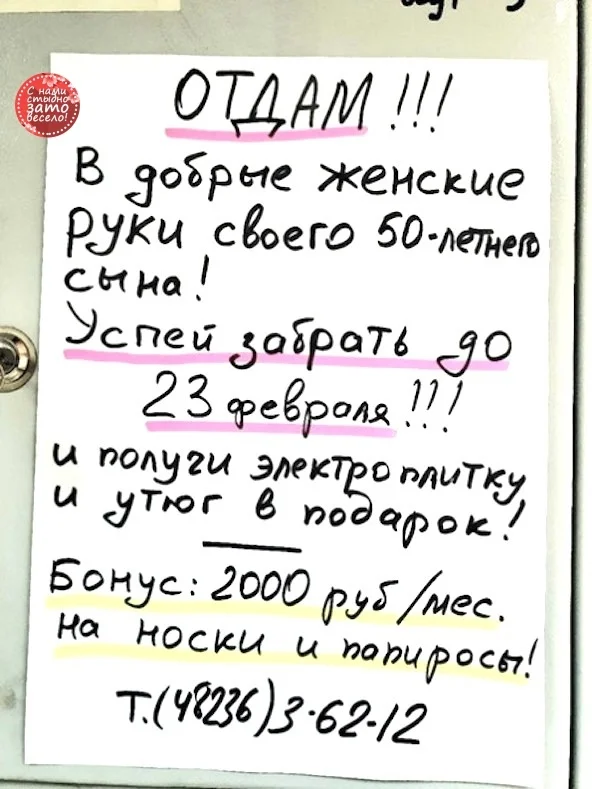 С нами
стыдно
зато
весело!
ОТДАМ!!!
В добрые женские
руки своего 50-летнего
сына!
Успей забрать до
23 февраля!!!
и получи электроплитку
и утюг в подарок!
Бонус: 2000 руб/мес.
на носки и папиросы!
Т.(48236)3-62-12